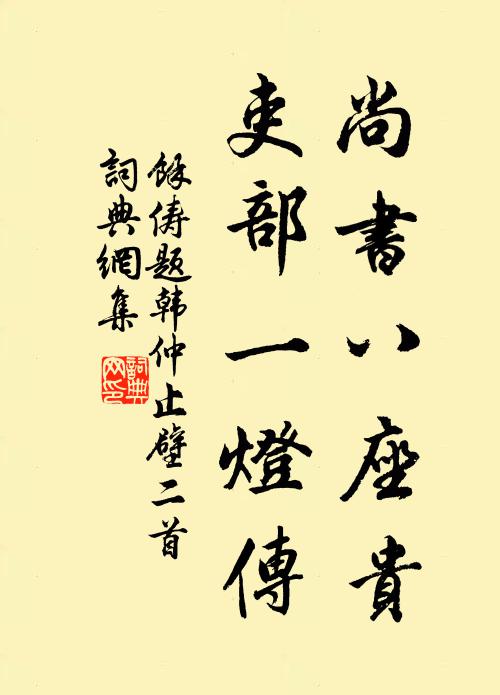 尚書八座貴
吏部一燈傳
餘儔題韩仲止壁二首
詞典網集
詞典网印